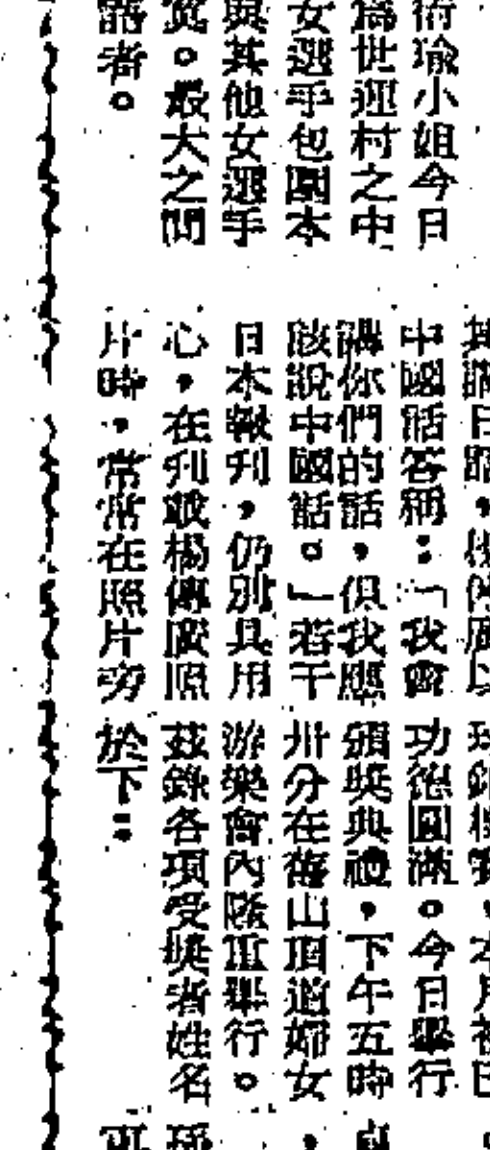 瑜小姐今日
為世運村之中
女選手包圍本
與其他女選手
。最大之問
語者。
中國話答稱：「我會
講你們的話，但我應
該說中國話。」若干
日本報刊，仍別具用
心，在刋載楊傳廣照
片時，常常在照片旁
功德圓滿。今日舉行
頒獎典禮，下午五時
卅分在舊山頂道婦女
游樂會內隆重舉行。
茲錄各項受獎者姓名
於下：